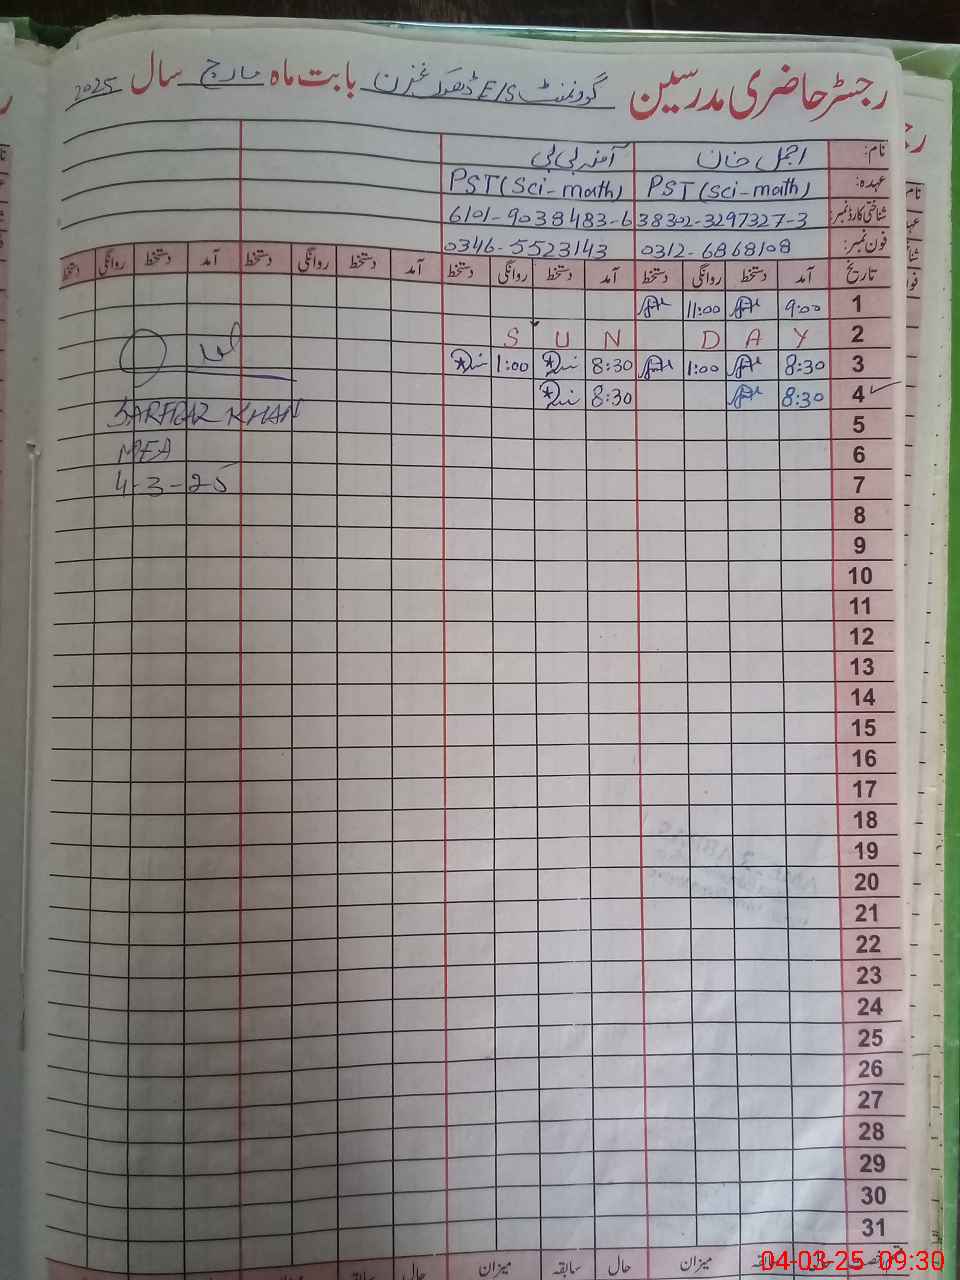 رجسٹر حاضری مدرسین گورنمنٹ E/S ڈھوک غزن بابت ماہ مارچ سال 2025
نام: اجمل خان آمنہ بی بی
عہدہ: PST (Sci-math) PST (Sci-math)
شناختی کارڈ نمبر: 38302-3297327-3 6101-9038483-6
فون نمبر: 0312-6868108 0346-5523143
تاریخ آمد دستخط روانگی دستخط آمد دستخط روانگی دستخط آمد دستخط روانگی دستخط آمد دستخط روانگی دستخط
1 9:00 11:00
2 S U N D A Y
3 8:30 1:00 8:30 1:00
4 8:30 8:30
SARFRAZ KHAN
5
MEA
6
4-3-25
7
8
9
10
11
12
13
14
15
16
17
18
19
20
21
22
23
24
25
26
27
28
29
30
31
حال سابقہ میزان حال سابقہ میزان حال
04-03-25 09:30